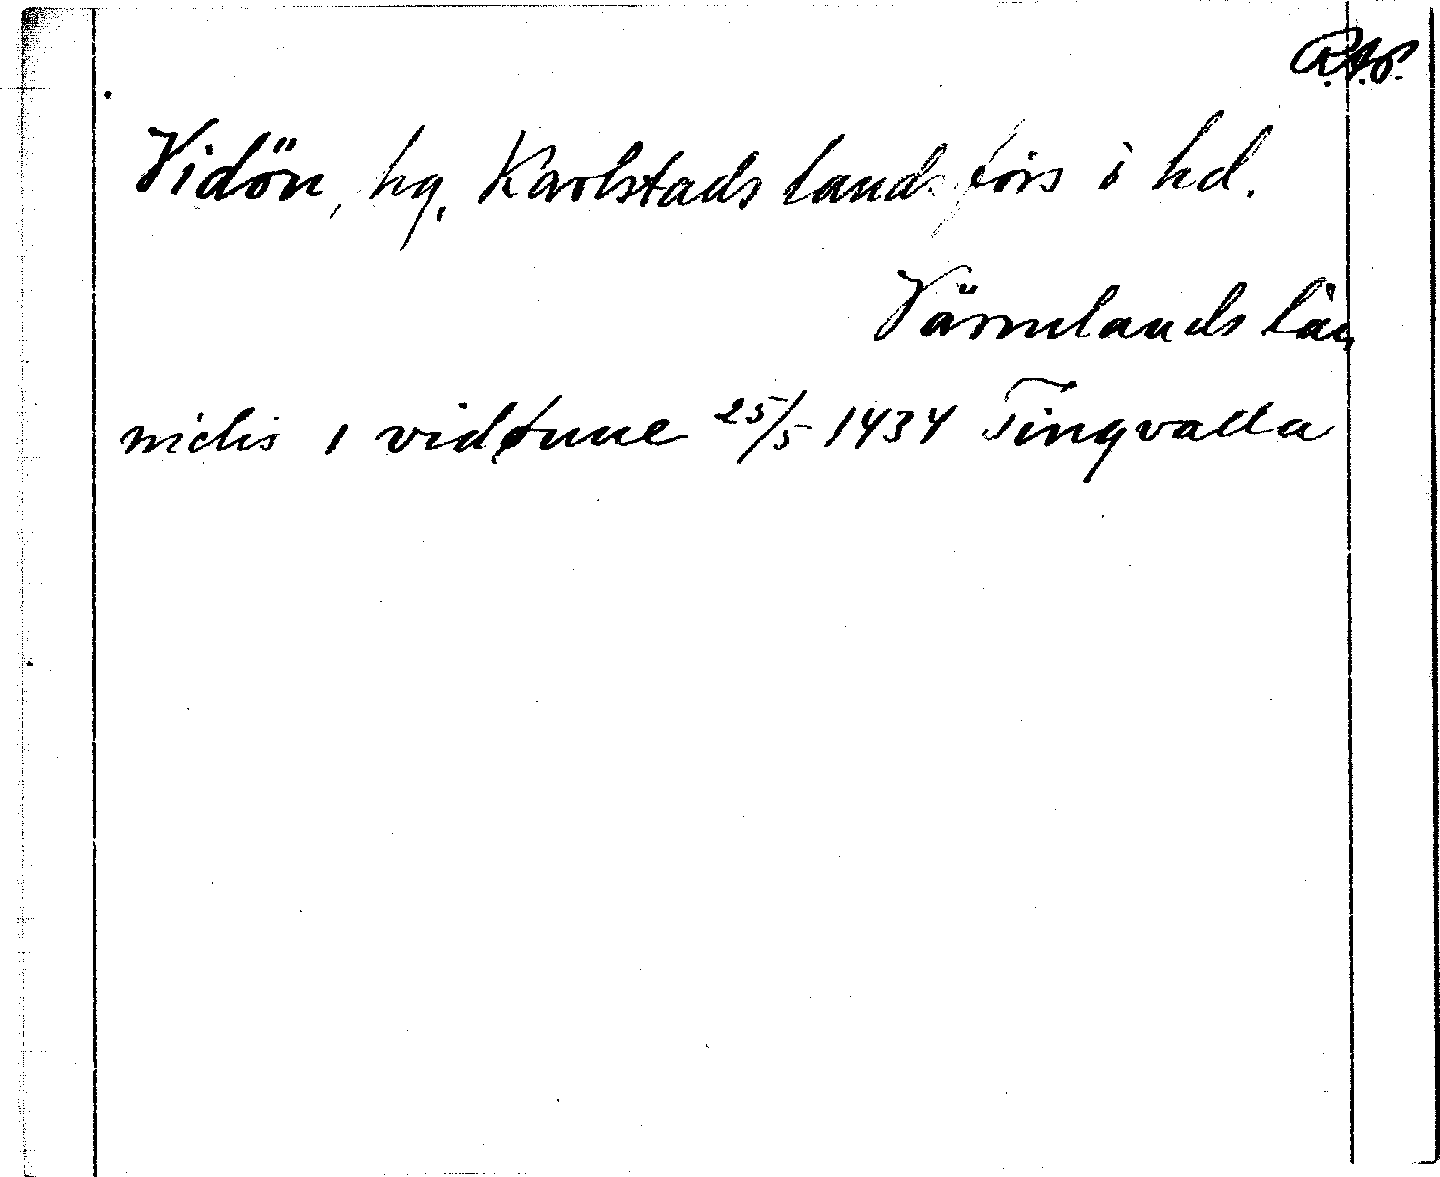 R.A.P.
Vidön, hg. Karlstads landsförs i hd.
Värmlands län
nielis i vidøune 25/5 1434 Tingvalla